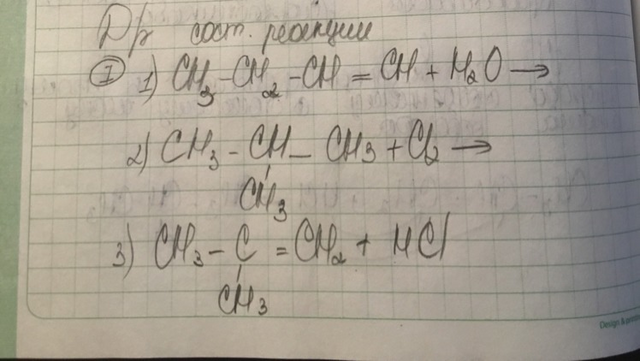 Др сост. реакции
I 1) CH3-CH2-CH=CH+H2O→
2) CH3-CH-CH3+Cl2→
CH3
3) CH3-C=CH2+HCl
CH3